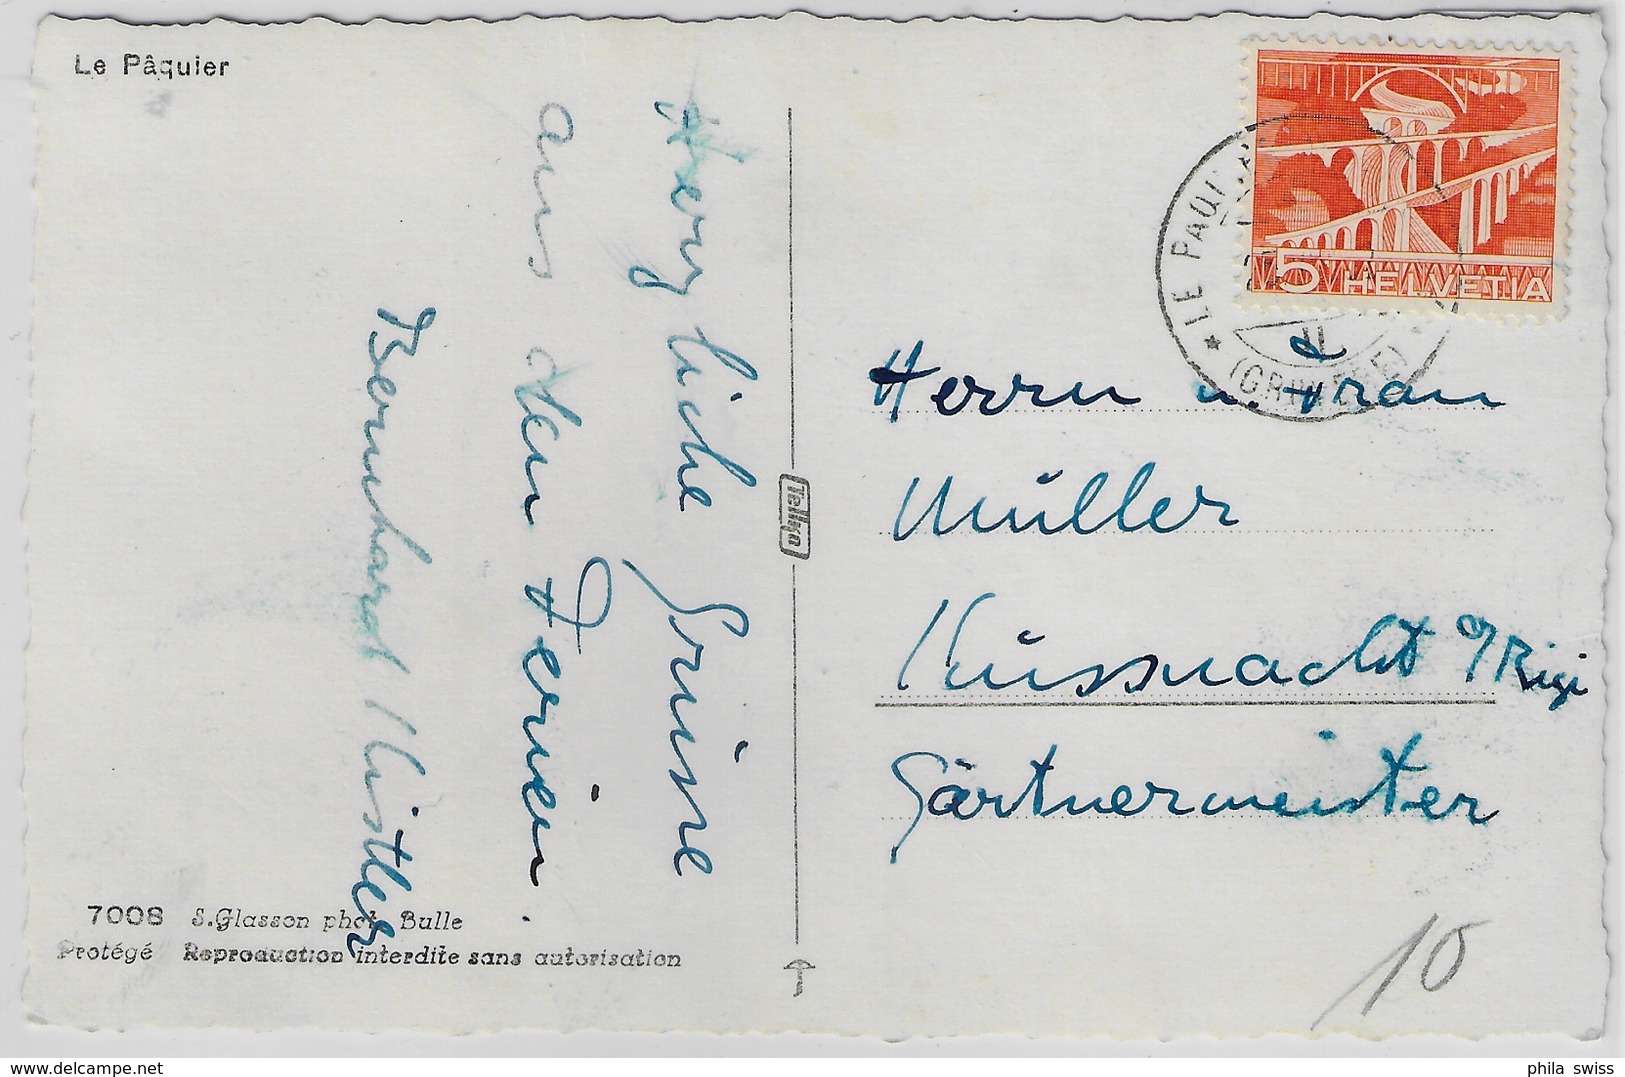 Le Pâquier
Herzliche Grüsse
aus den Ferien
Bernhard Kistler
7008 S. Glasson phot. Bulle
Protégé Reproduction interdite sans autorisation
Tellko
5 HELVETIA
LE PAQUIER
(GRUYERE)
Herrn u. Frau
Müller
Küssnacht a/Rigi
Gärtnermeister
10
delcampe.net
phila swiss